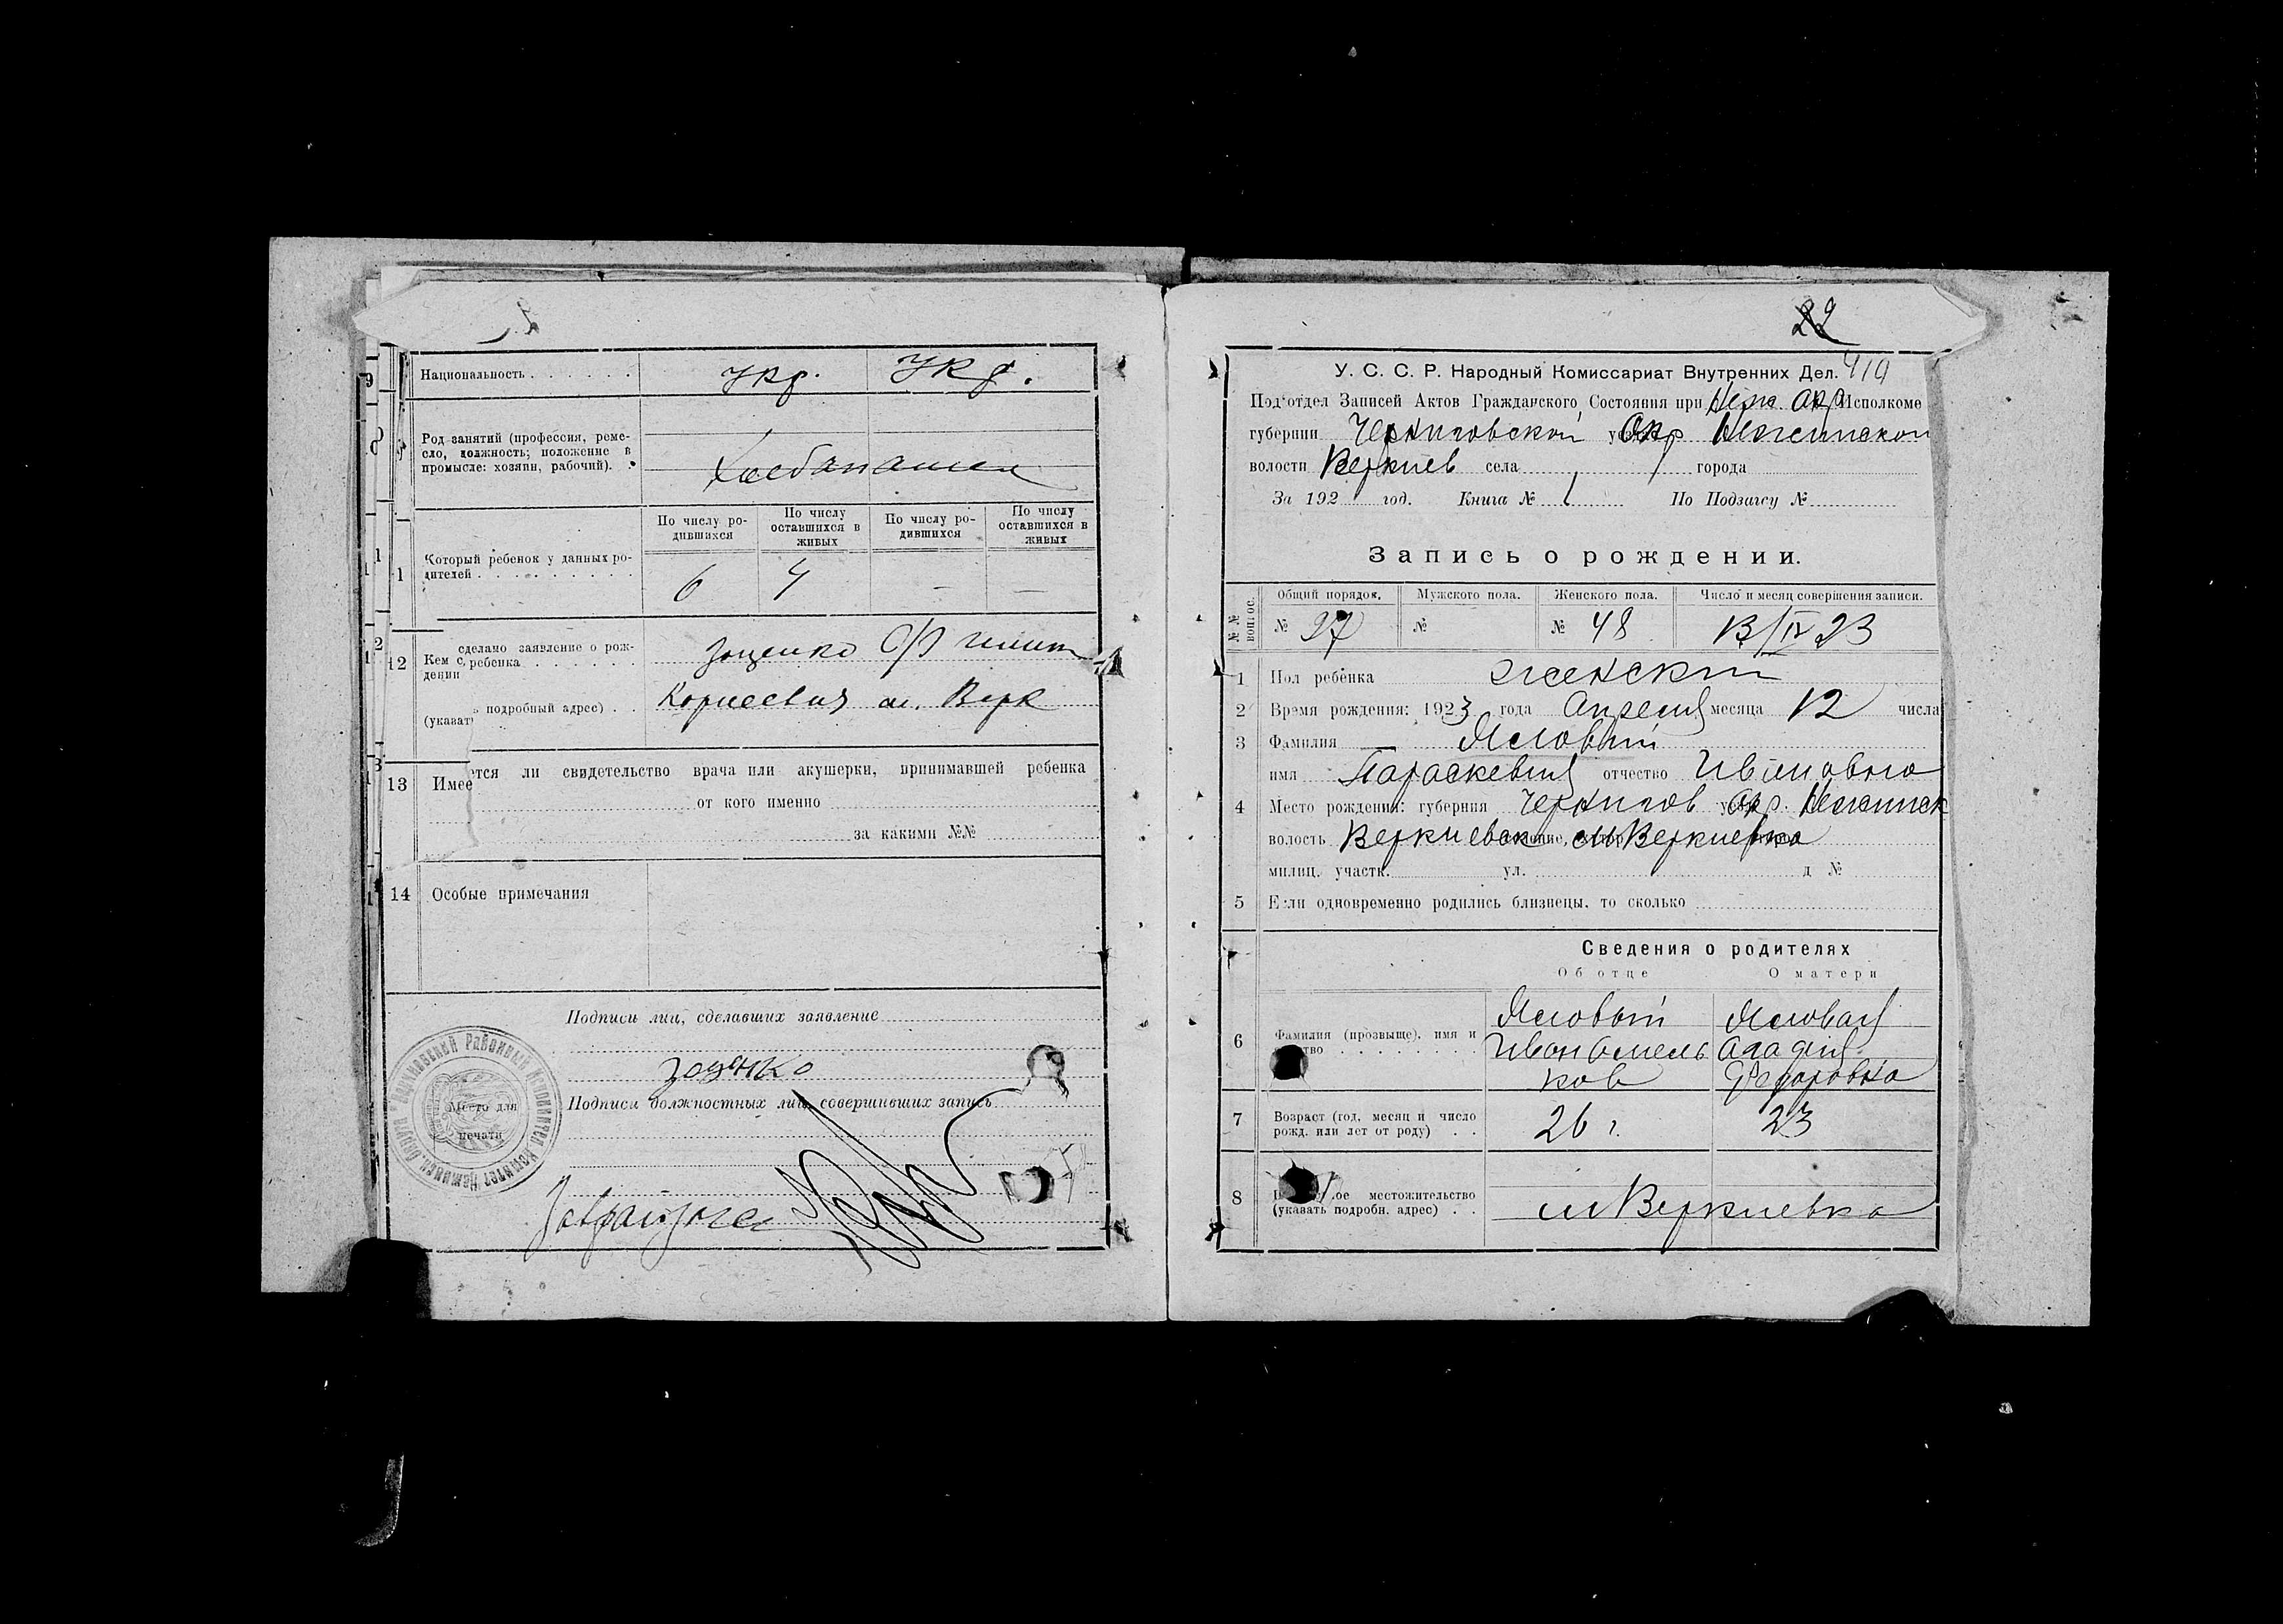 Национальность . . . . . . Укр. Укр.
Род занятий (профессия, реме-
сло, должность; положение в
промысле: хозяин, рабочий).
Хлебапашец
По числу ро-
дившихся
По числу
оставшихся в
живых
По числу ро-
дившихся
По числу
оставшихся в
живых
1 Который ребенок у данных ро-
дителей . . . . . . . . . 6 4 — —
12 Кем с, сделано заявление о рож-
дении ребенка . . . . . . Зощенко
(указать подробный адрес) . . Корнеевич м. Верк
13 Имеется ли свидетельство врача или акушерки, принимавшей ребенка
от кого именно
за какими №№
14 Особые примечания
Подписи лиц, сделавших заявление
Зощенко
Подписи должностных лиц, совершивших запись
Место для
печати
22
419
У. С. С. Р. Народный Комиссариат Внутренних Дел.
Под'отдел Записей Актов Гражданского Состояния при Неж Окр Исполкоме
губернии Черниговской Окр Нежинской
волости Веркиев села города
За 192 год. Книга № 1 По Подзагсу №
Запись о рождении.
№№ вопрос.
Общий порядок. Мужского пола. Женского пола. Число и месяц совершения записи.
№ 97 № № 48 13/IV 23
1 Пол ребенка женский
2 Время рождения: 1923 года Апреля месяца 12 числа
3 Фамилия Яловый
имя Параскевия отчество Ивановна
4 Место рождения: губерния Чернигов окр. Нежинск
волость Веркиевск м Веркиевка
милиц. участк. ул. д №
5 Если одновременно родились близнецы, то сколько
Сведения о родителях
Об отце О матери
6 Фамилия (прозвище), имя и
Яловый Яловая
Иван Омель
ков Федоровна
7 Возраст (год, месяц и число
рожд. или лет от роду) . . 26 г. 23
8 местожительство
(указать подробн. адрес) . . м Веркиевка